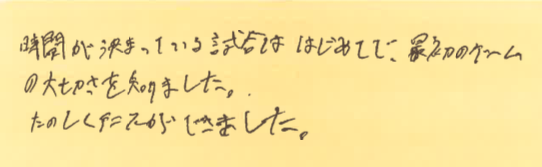 時間が決まっている試合は はじめてで、最初のゲーム
の大切さを知りました。
たのしくテニスができました。